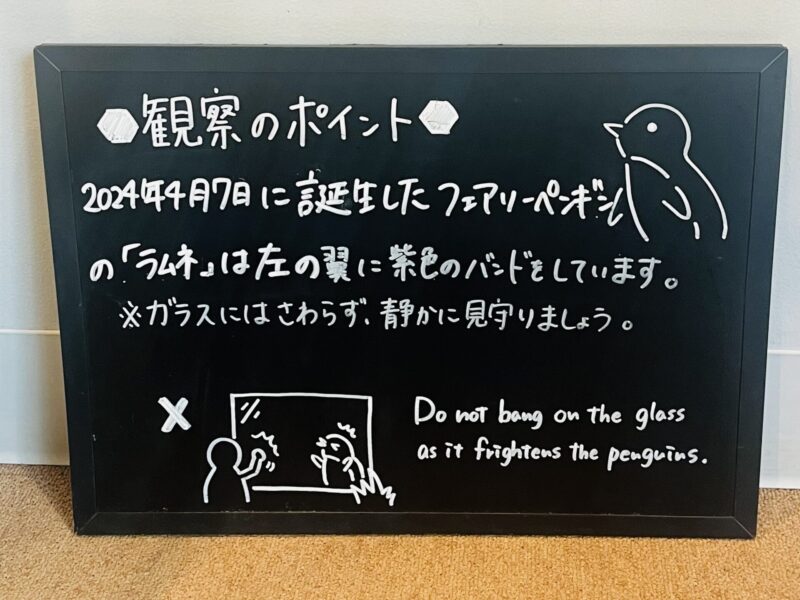 ●観察のポイント●
2024年4月7日に誕生したフェアリーペンギン
の「ラムネ」は左の翼に紫色のバンドをしています。
※ガラスにはさわらず、静かに見守りましょう。
Do not bang on the glass
as it frightens the penguins.